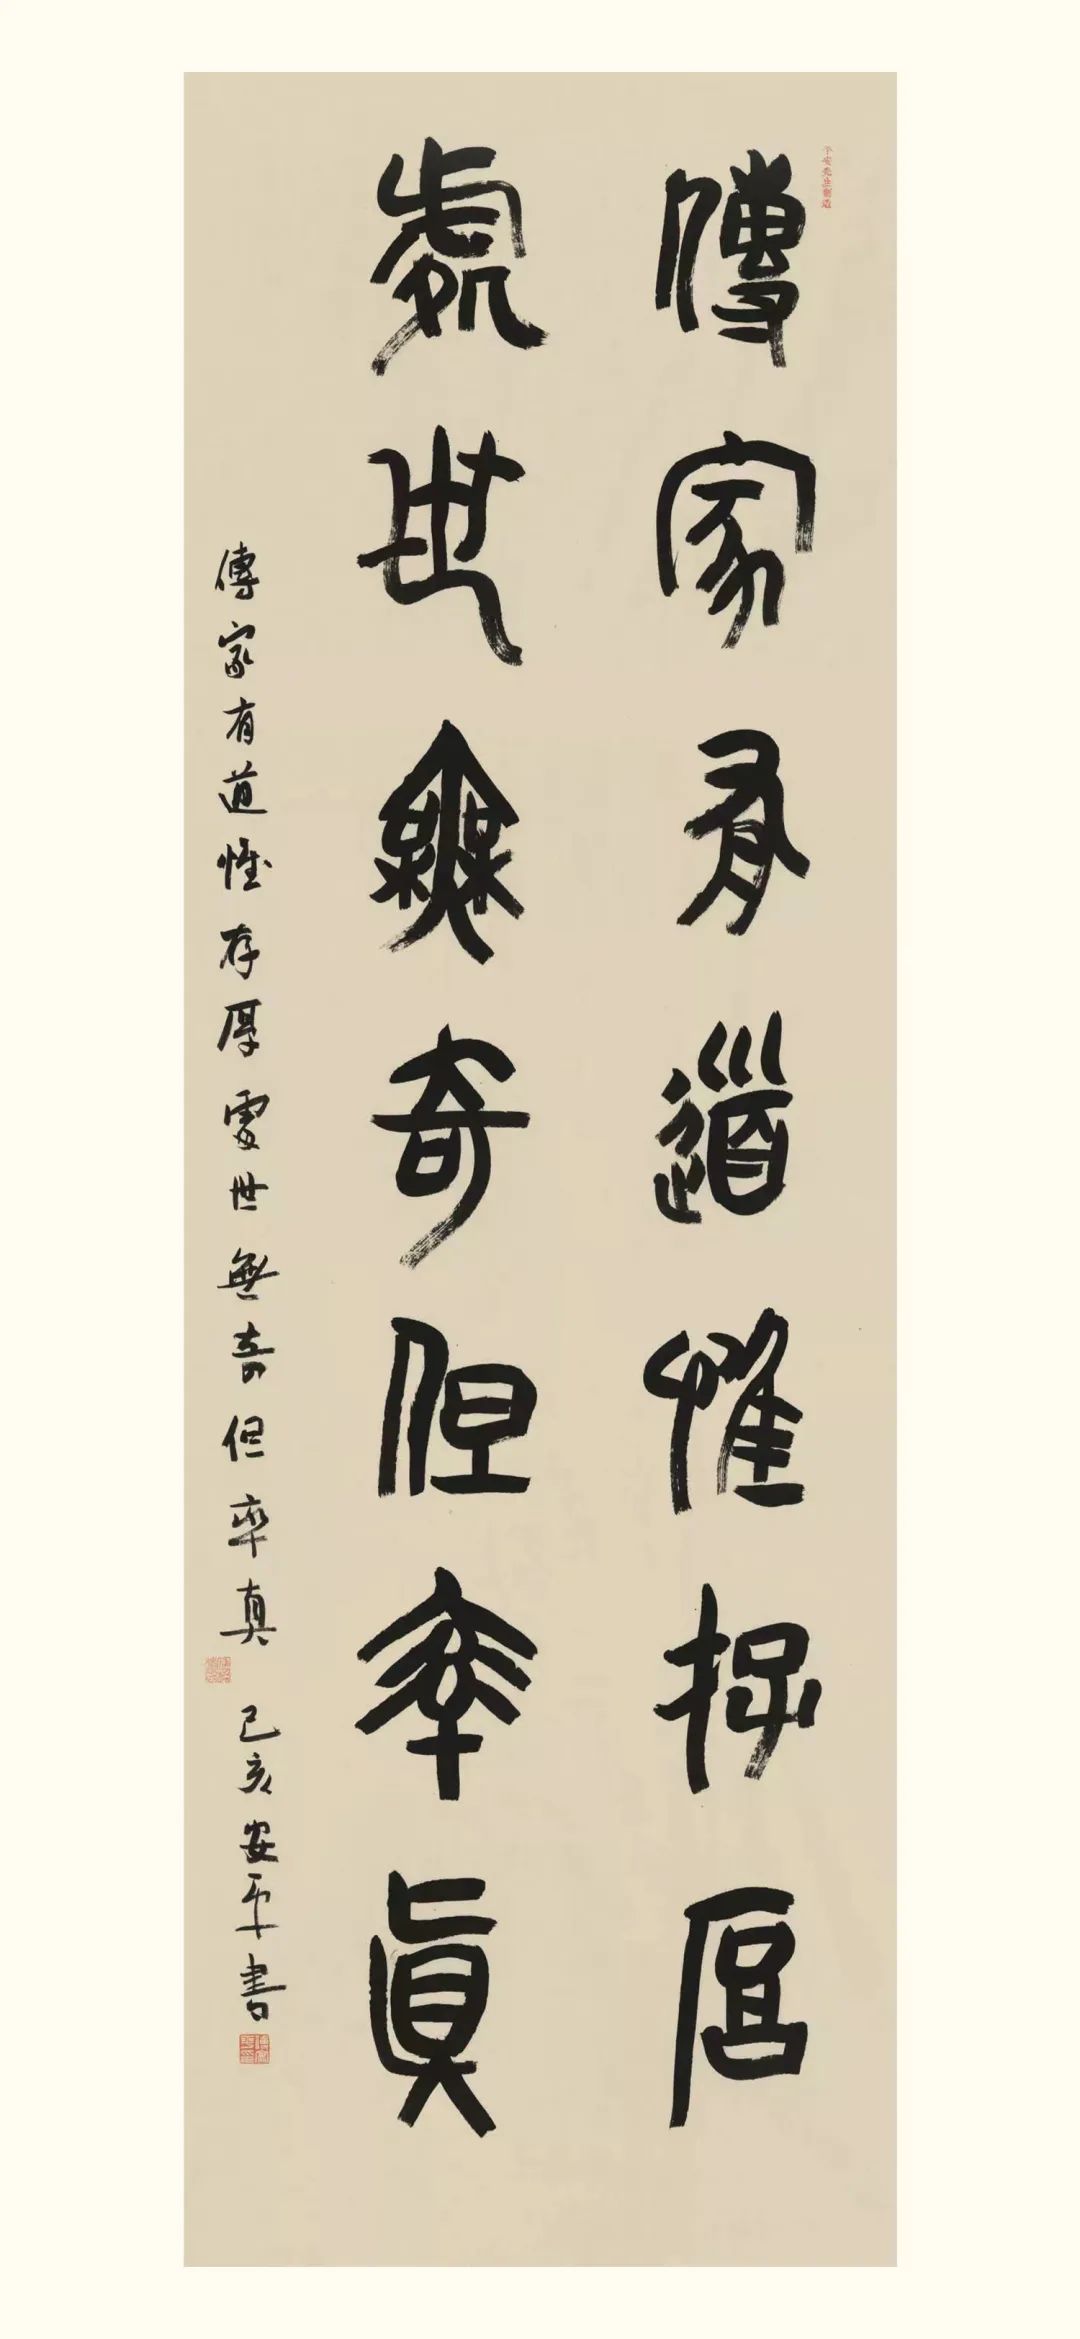 傳家有道惟存厚
處世無奇但率真
傳家有道惟存厚處世無奇但率真
己亥安平書